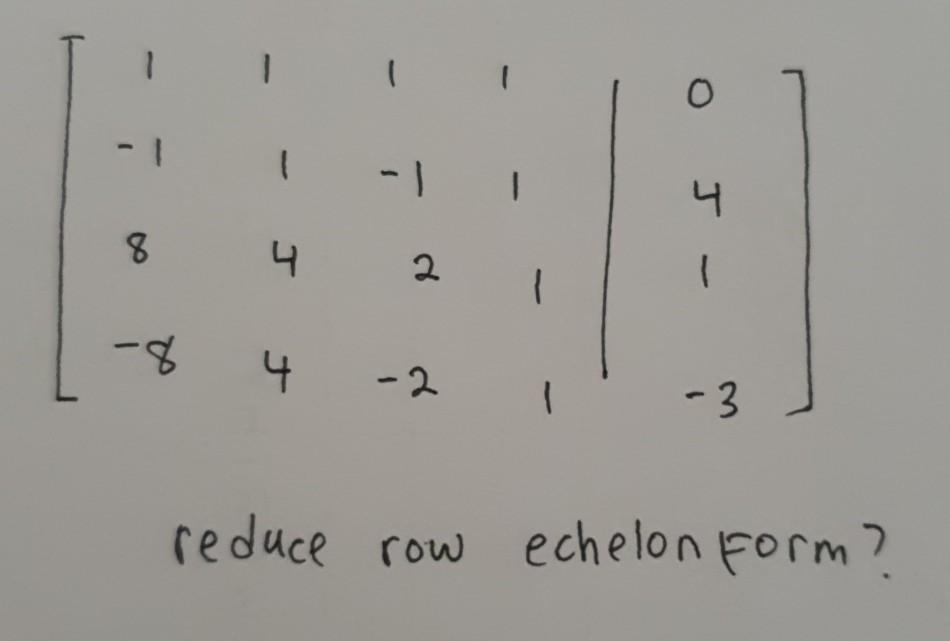 1 1 1 1 0
-1 1 -1 1 4
8 4 2 1 1
-8 4 -2 1 -3
reduce row echelon Form?